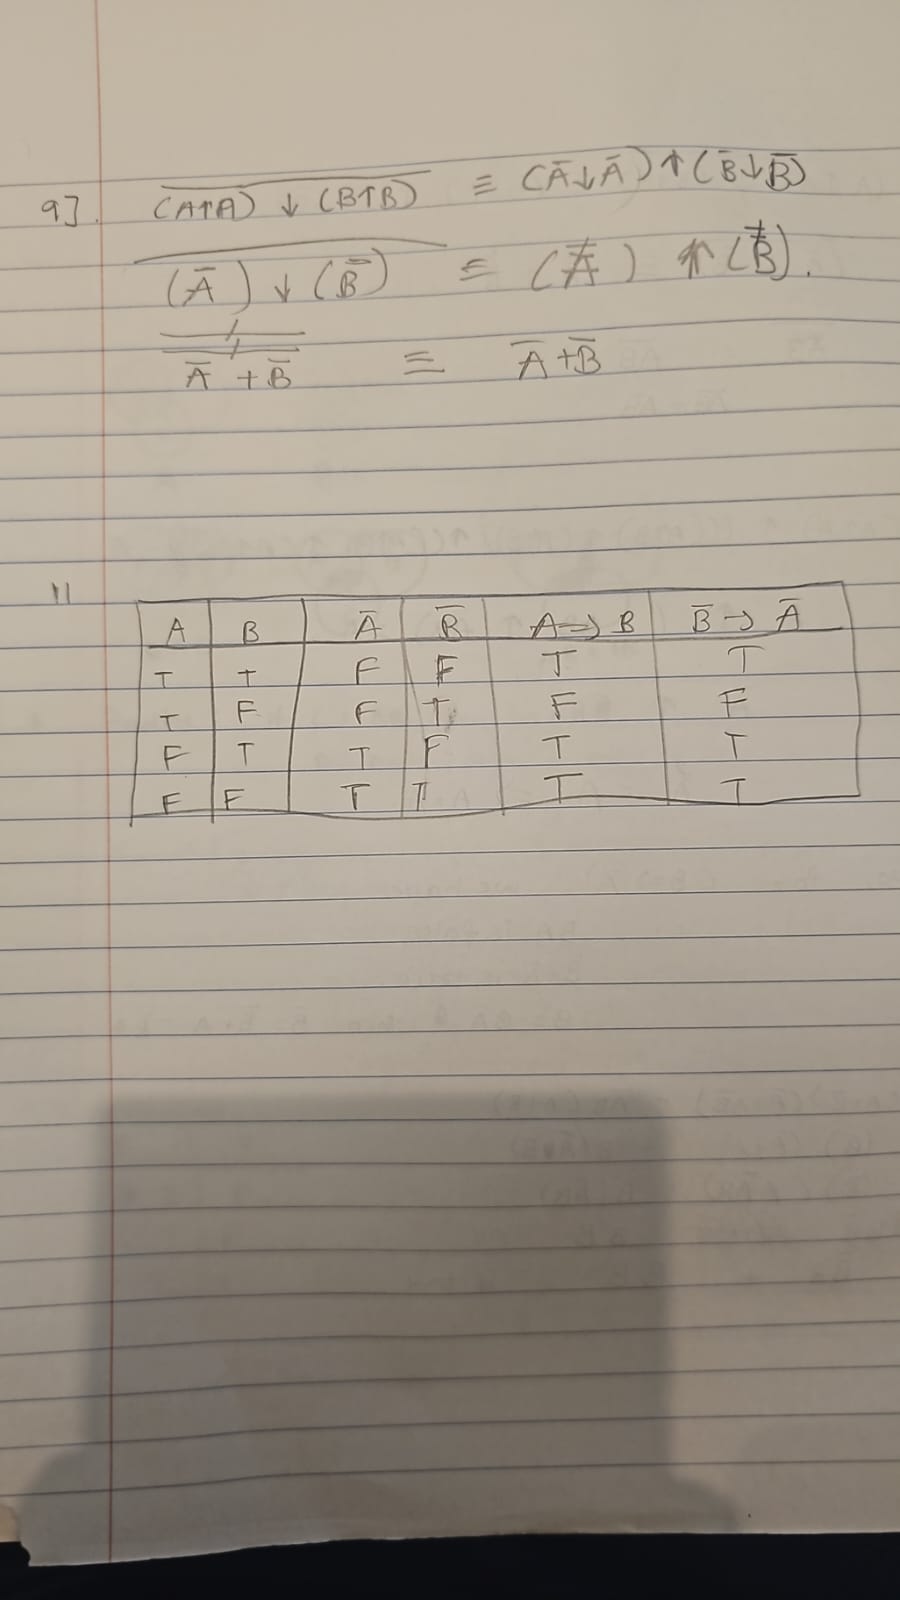 9].
\overline{(A↑A) ↓ (B↑B)} ≡ (Ā↓Ā)↑(B̄↓B̄)
\overline{(Ā) ↓ (B̄)} ≡ (A) ↑ (B).
Ā + B̄ ≡ Ā+B̄
11
A B Ā B̄ A→B B̄→Ā
T T F F T T
T F F T F F
F T T F T T
F F T T T T